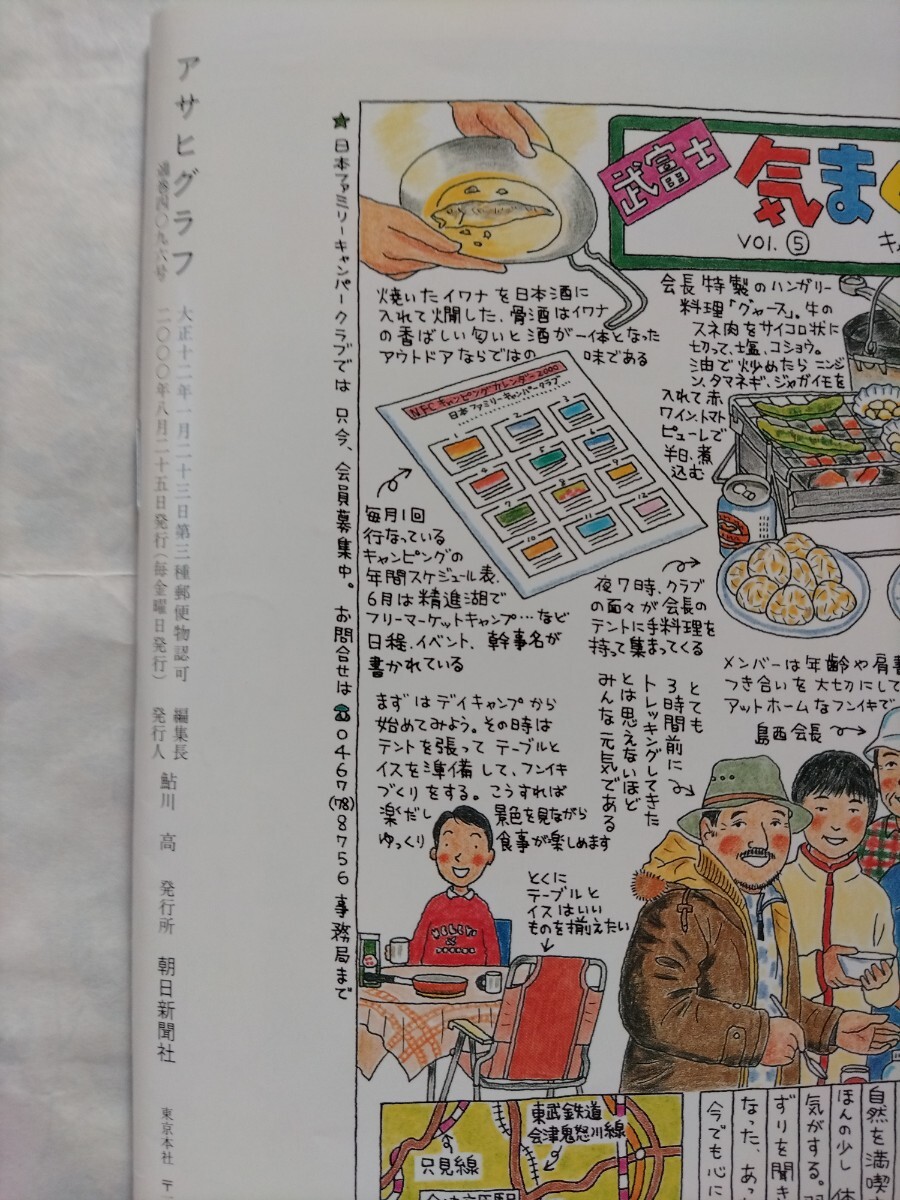 アサヒグラフ
通巻四〇九六号
大正十二年一月二十三日第三種郵便物認可
二〇〇〇年八月二十五日発行(毎金曜日発行)
編集長
発行人
鮎川 高
発行所 朝日新聞社
東京本社 〒
★日本ファミリーキャンパークラブでは只今、会員募集中。お問合せは☎0467(78)8756事務局まで
武富士
気ま
VOl. ⑤
キ
焼いたイワナを日本酒に
入れて火閒した、骨酒はイワナ
の香ばしい匂いと酒が一体となった
アウトドアならではの 味である
会長特製のハンガリー
料理「グヤース」。牛の
スネ肉をサイコロ状に
切って、塩、コショウ。
油で炒めたら ニンジ
ン、タマネギ、ジャガイモを
入れて赤
ワイン、トマト
ピューレで
半日、煮
込む
NFCキャンピングカレンダー2000
日本ファミリーキャンパークラブ
1
2
3
4
5
6
7
8
9
10
11
12
毎月1回
行なっている
キャンピングの
年間スケジュール表。
6月は精進湖で
フリーマーケットキャンプ…など
日程、イベント、幹事名が
書かれている
夜7時、クラブ
の面々が会長の
テントに手料理を
持って集まってくる
メンバーは年齢や肩書
つき合いを大切にして
アットホームなフンイキで
島西会長
まずはデイキャンプから
始めてみよう。その時は
テントを張ってテーブルと
イスを準備して、フンイキ
づくりをする。こうすれば
楽だし 景色を見ながら
ゆっくり 食事が楽しめます
とても
3時間前に
トレッキングしてきた
とは思えないほど
みんな元気である
とくに
テーブルと
イスはいい
ものを揃えたい
只見線
東武鉄道
会津鬼怒川線
自然を満喫
ほんの少し 体
気がする。
ずりを聞き
なった、あっ
今でも心に